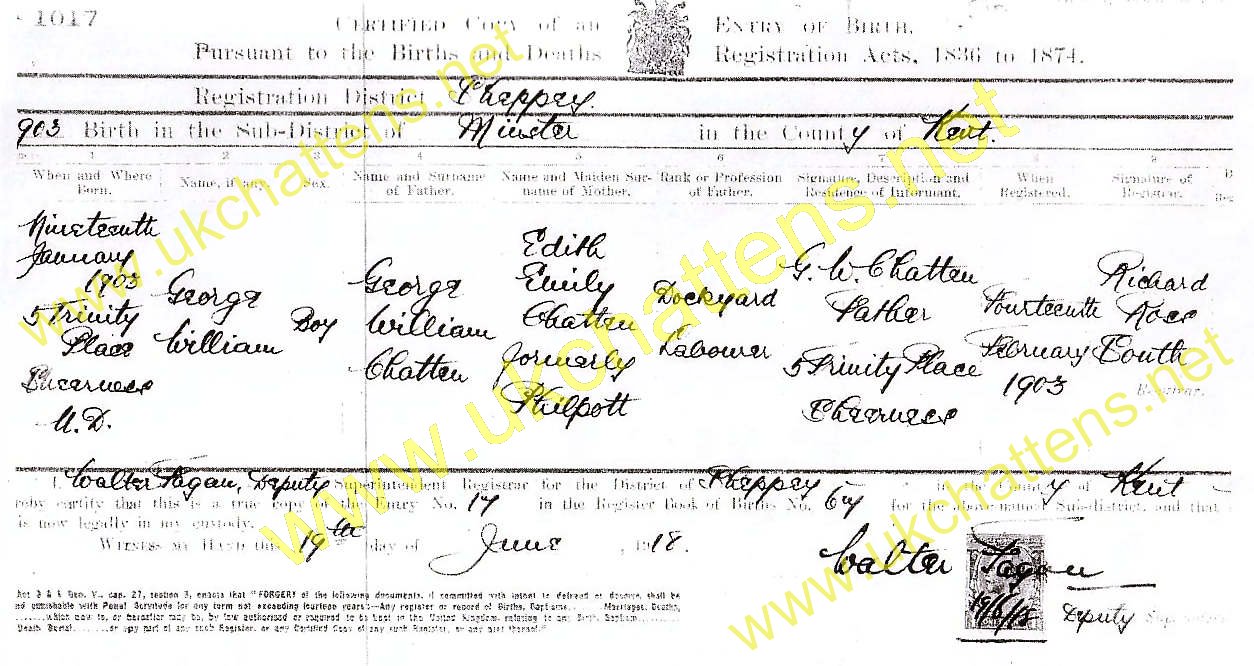 1017
CERTIFIED COPY OF AN ENTRY OF BIRTH.
PURSUANT TO THE BIRTHS AND DEATHS REGISTRATION ACTS, 1836 TO 1874.
Registration District Sheppey.
903 Birth in the Sub-District of Minster in the County of Kent.
1 2 3 4 5 6 7 8 9
When and Where Born. Name, if any. Sex. Name and Surname of Father. Name and Maiden Surname of Mother. Rank or Profession of Father. Signature, Description and Residence of Informant. When Registered. Signature of Registrar.
Nineteenth
January
1903
5 Trinity
Place
Sheerness
U.D.
George
William
Boy
George
William
Chatten
Edith
Emily
Chatten
formerly
Philpott
Dockyard
Labourer
G. W. Chatten
Father
5 Trinity Place
Sheerness
Fourteenth
February
1903
Richard
Ross
South
Registrar.
I, Walter Fagan, Deputy Superintendent Registrar for the District of Sheppey in the County of Kent
reby certify that this is a true copy of the Entry No. 17 in the Register Book of Births No. 67 for the above-named Sub-district, and that
is now legally in my custody.
WITNESS MY HAND this 19th day of June, 1918.
Walter Fagan
19/6/18
Deputy
Act 3 & 4 Geo. V., cap. 27, section 3, enacts that "FORGERY of the following documents, if committed with intent to defraud or deceive, shall be
and punishable with Penal Servitude for any term not exceeding fourteen years:—Any register or record of Births, Baptisms, ..... Marriages, Deaths,
.......which now is, or hereafter may be, by law authorised or required to be kept in the United Kingdom, relating to any Birth, Baptism.......
Death, Burial.......or any part of any such Register, or any Certified Copy of any such Register, or any part thereof."
www.ukchattens.net
www.ukchattens.net
www.ukchattens.net
www.ukchattens.net